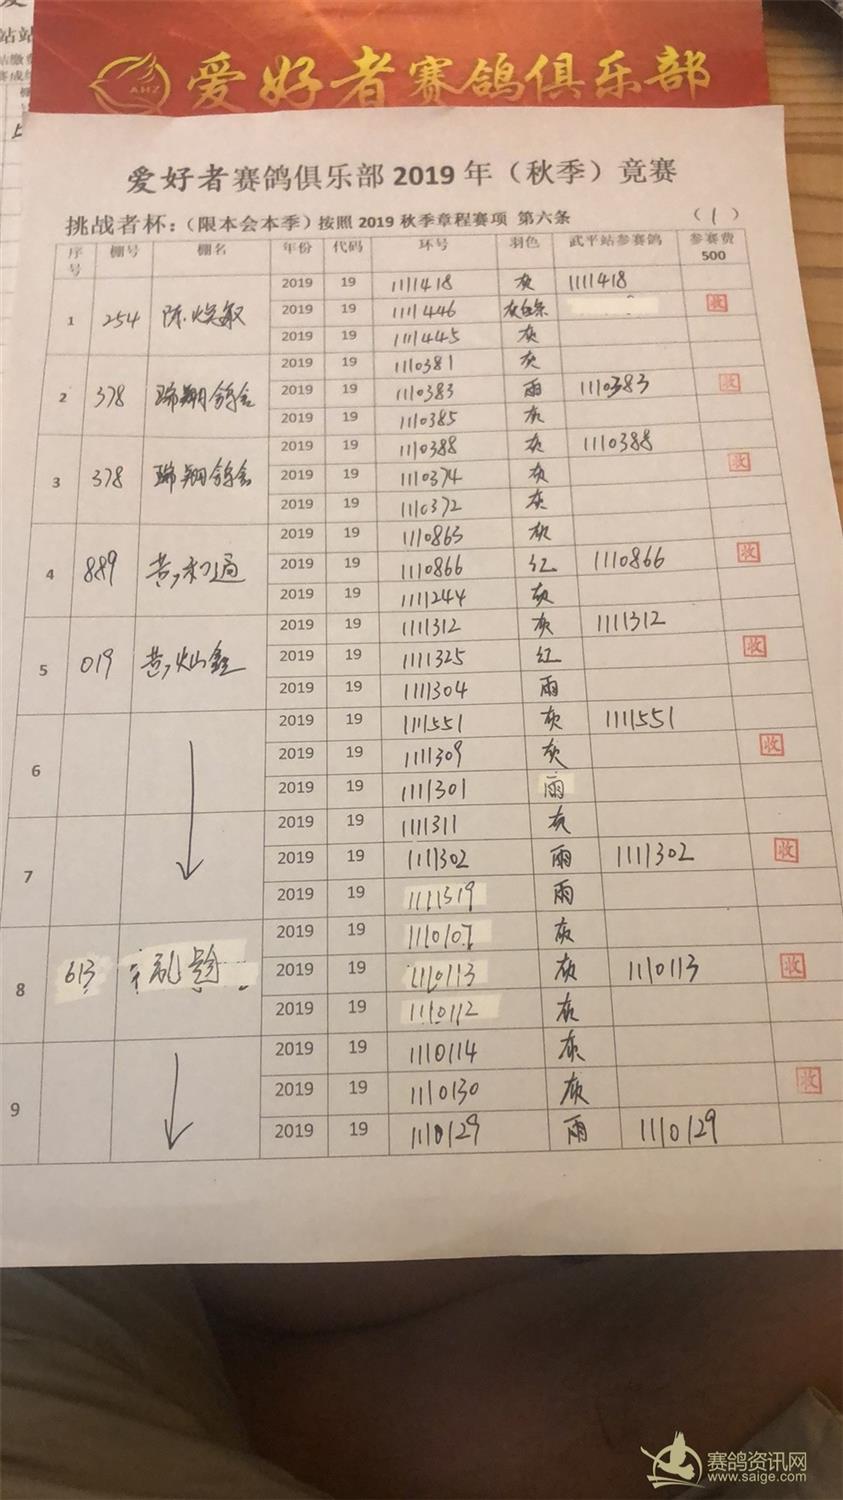 爱好者赛鸽俱乐部
AHZ
爱好者赛鸽俱乐部 2019 年（秋季）竞赛
挑战者杯：（限本会本季）按照 2019 秋季章程赛项 第六条 （1）
序号 棚号 棚名 年份 代码 环号 羽色 武平站参赛鸽 参赛费 500
2019 19 1111418 灰 1111418
1 254 陈焕敏 2019 19 1111446 灰白条 收
2019 19 1111445 灰
2019 19 1110381 灰
2 378 瑞翔鸽舍 2019 19 1110383 雨 1110383 收
2019 19 1110385 灰
2019 19 1110388 灰 1110388
3 378 瑞翔鸽舍 2019 19 1110374 灰 收
2019 19 1110372 灰
2019 19 1110865 灰
4 889 黄和通 2019 19 1110866 红 1110866 收
2019 19 1111244 灰
2019 19 1111312 灰 1111312
5 019 黄灿鑫 2019 19 1111325 红 收
2019 19 1111304 雨
2019 19 1111551 灰 1111551
6 2019 19 1111309 灰 收
2019 19 1111301 雨
2019 19 1111311 灰
7 2019 19 1111302 雨 1111302 收
2019 19 1111319 雨
2019 19 1110107 灰
8 613 2019 19 1110113 灰 1110113 收
2019 19 1110112 灰
2019 19 1110114 灰
9 2019 19 1110130 灰 收
2019 19 1110129 雨 1110129
赛鸽资讯网
www.saige.com